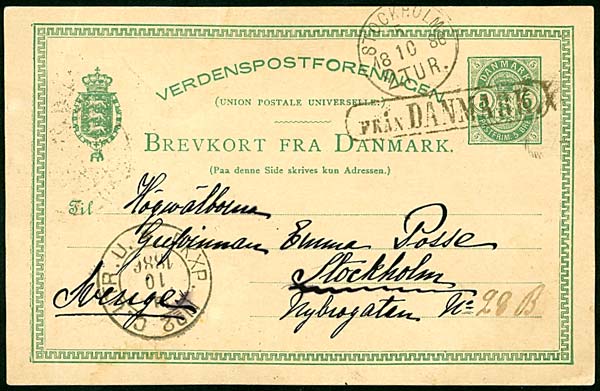 STOCKHOLM
18 10 86
TUR.
VERDENSPOSTFORENINGEN
(UNION POSTALE UNIVERSELLE.)
DANMARK
5 5
FRÅN DANMARK
BREVKORT FRA DANMARK.
(Paa denne Side skrives kun Adressen.)
Til
Högvälborna
Grefvinnan Emma Posse
Stockholm
Sverige
Nybrogatan No 28 B
1886
10